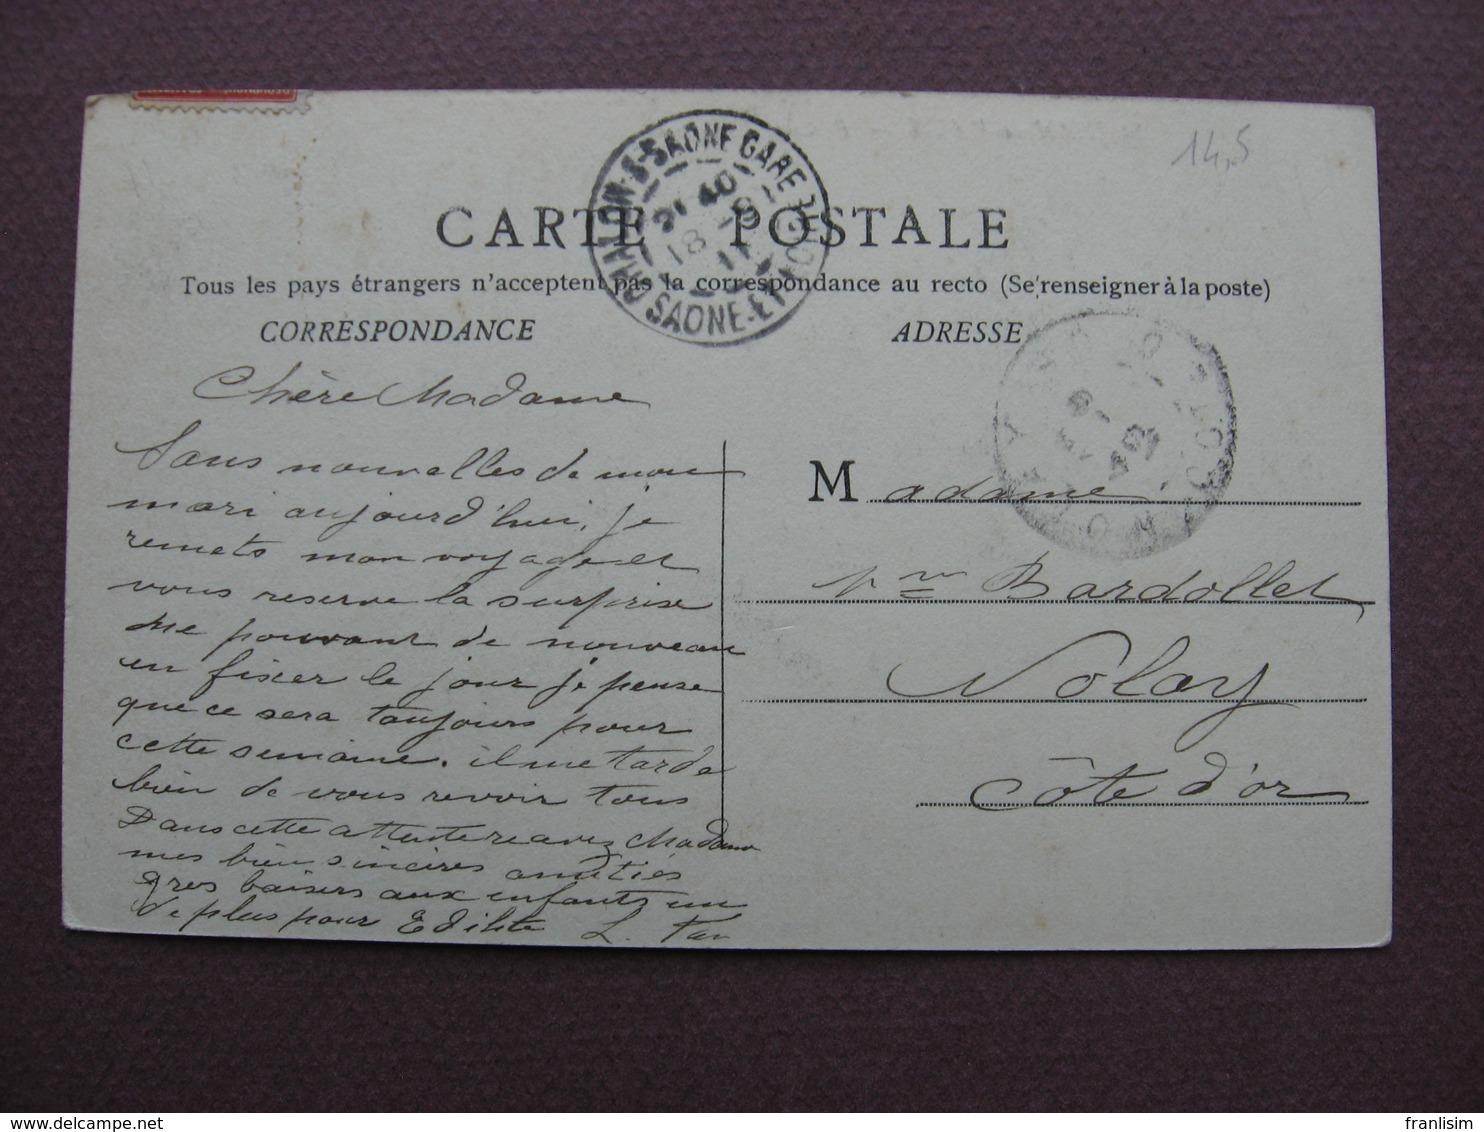 14,5
CHALON-S-SAONE GARE
SAONE-ET-LOIRE
21 40
18 -8
11
CARTE POSTALE
Tous les pays étrangers n'acceptent pas la correspondance au recto (Se renseigner à la poste)
CORRESPONDANCE
ADRESSE
Chère Madame
Sans nouvelles de mon
mari aujourd'hui, je
remets mon voyage et
vous reserve la surprise
Ne pouvant de nouveau
en fixer le jour je pense
que ce sera toujours pour
cette semaine. il me tarde
bien de vous revoir tous
Dans cette attente recevez Madame
mes bien sincères amitiés
gros baisers aux enfants un
de plus pour L.
Madame
Vve Bardollet
Nolay
Côte d'or
franlisim